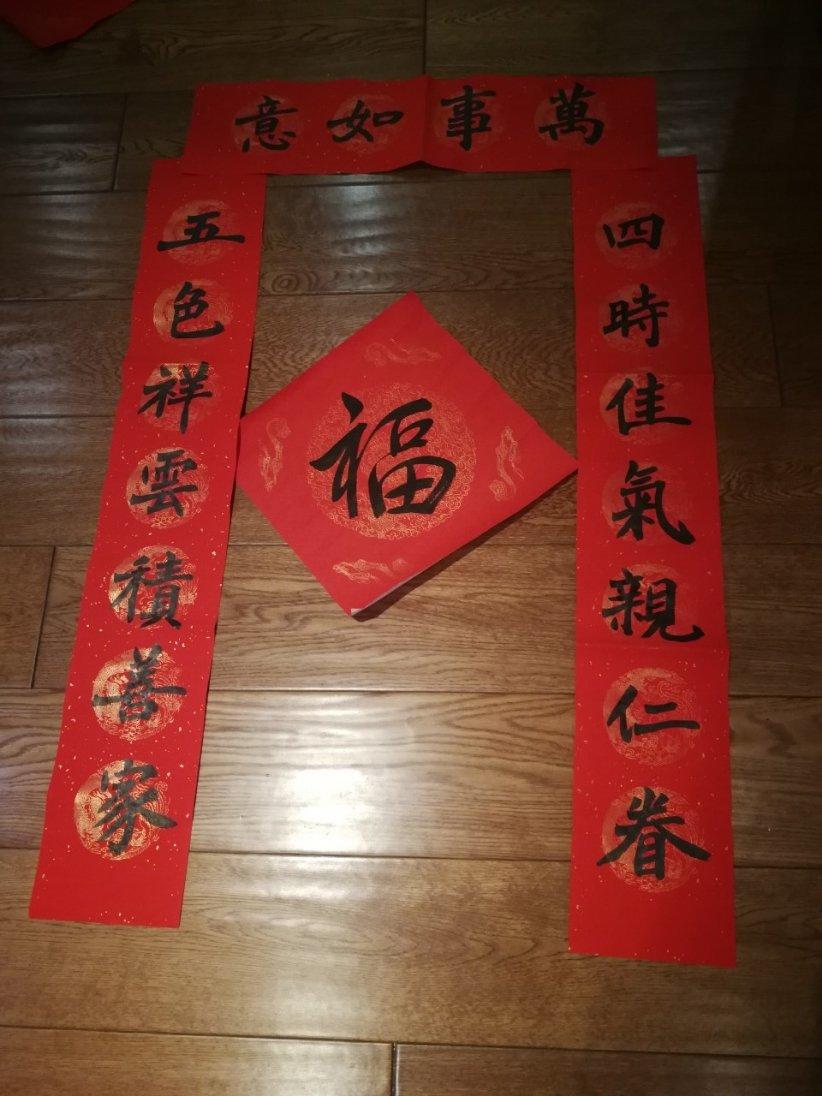 萬事如意
四時佳氣親仁眷
五色祥雲積善家
福